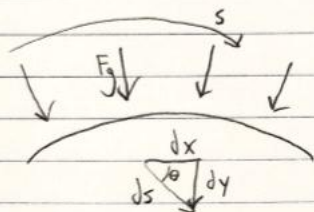 s
Fg
dx
θ
ds
dy